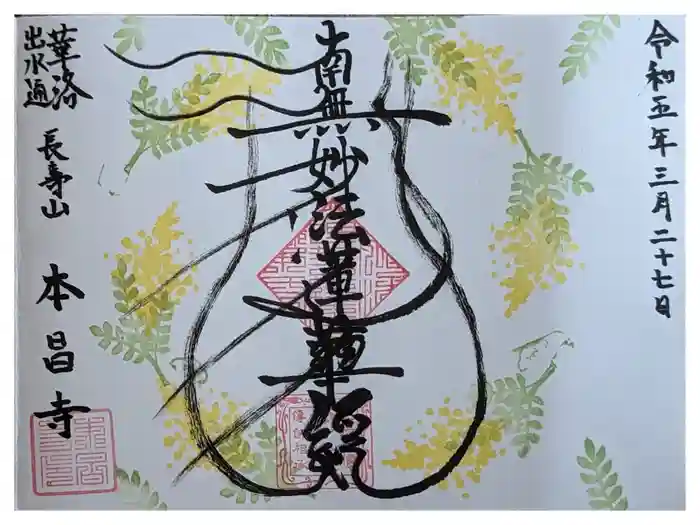 令和五年三月二十七日
南無妙法蓮華経
華洛
出水通
長寿山
本昌寺